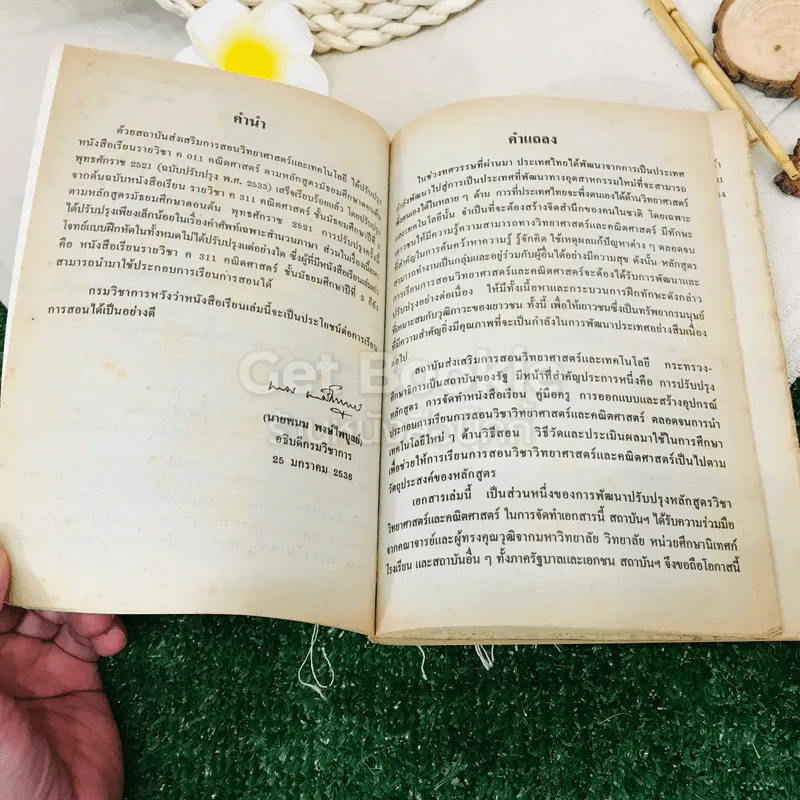 คำนำ
ด้วยสถาบันส่งเสริมการสอนวิทยาศาสตร์และเทคโนโลยี ได้ปรับปรุง
หนังสือเรียนรายวิชา ค 011 คณิตศาสตร์ ตามหลักสูตรมัธยมศึกษาตอนต้น
พุทธศักราช 2521 (ฉบับปรับปรุง พ.ศ. 2533) เสร็จเรียบร้อยแล้ว โดยปรับปรุง
จากต้นฉบับหนังสือเรียน รายวิชา ค 311 คณิตศาสตร์ ชั้นมัธยมศึกษาปีที่
ตามหลักสูตรมัธยมศึกษาตอนต้น พุทธศักราช 2521 การปรับปรุงครั้งนี้
ได้ปรับปรุงเพียงเล็กน้อยในเรื่องคำศัพท์เฉพาะสำนวนภาษา ส่วนในเรื่องเนื้อหา
โจทย์แบบฝึกหัดในทั้งหมดไม่ได้ปรับปรุงแต่อย่างใด ซึ่งผู้ที่มีหนังสือเรียนเล่มเก่า
คือ หนังสือเรียนรายวิชา ค 311 คณิตศาสตร์ ชั้นมัธยมศึกษาปีที่ 3 ก็ยัง
สามารถนำมาใช้ประกอบการเรียนการสอนได้
กรมวิชาการหวังว่าหนังสือเรียนเล่มนี้จะเป็นประโยชน์ต่อการเรียน
การสอนได้เป็นอย่างดี
(นายพนม พงษ์ไพบูลย์)
อธิบดีกรมวิชาการ
25 มกราคม 2536
คำแถลง
ในช่วงทศวรรษที่ผ่านมา ประเทศไทยได้พัฒนาจากการเป็นประเทศ
กำลังพัฒนาไปสู่การเป็นประเทศที่พัฒนาทางอุตสาหกรรมใหม่ที่จะสามารถ
พึ่งตนเองได้ในหลาย ๆ ด้าน การที่ประเทศไทยจะพึ่งตนเองได้ด้านวิทยาศาสตร์
และเทคโนโลยีนั้น จำเป็นที่จะต้องสร้างจิตสำนึกของคนในชาติ โดยเฉพาะ
เยาวชนให้มีความรู้ความสามารถทางวิทยาศาสตร์และคณิตศาสตร์ มีทักษะ
ที่สำคัญในการค้นคว้าหาความรู้ รู้จักคิด ใช้เหตุผลแก้ปัญหาต่าง ๆ ตลอดจน
สามารถทำงานเป็นกลุ่มและอยู่ร่วมกับผู้อื่นได้อย่างมีความสุข ดังนั้น หลักสูตร
การเรียนการสอนวิทยาศาสตร์และคณิตศาสตร์จะต้องได้รับการพัฒนาและ
ปรับปรุงอย่างต่อเนื่อง ให้มีทั้งเนื้อหาและกระบวนการฝึกทักษะดังกล่าว
ที่เหมาะสมกับวุฒิภาวะของเยาวชน ทั้งนี้ เพื่อให้เยาวชนซึ่งเป็นทรัพยากรมนุษย์
ที่มีความสำคัญยิ่งมีคุณภาพที่จะเป็นกำลังในการพัฒนาประเทศอย่างสืบเนื่อง
ต่อไป
สถาบันส่งเสริมการสอนวิทยาศาสตร์และเทคโนโลยี กระทรวง-
ศึกษาธิการเป็นสถาบันของรัฐ มีหน้าที่สำคัญประการหนึ่งคือ การปรับปรุง
หลักสูตร การจัดทำหนังสือเรียน คู่มือครู การออกแบบและสร้างอุปกรณ์
ประกอบการเรียนการสอนวิชาวิทยาศาสตร์และคณิตศาสตร์ ตลอดจนการนำ
เทคโนโลยีใหม่ ๆ ด้านวิธีสอน วิธีวัดและประเมินผลมาใช้ในการศึกษา
เพื่อช่วยให้การเรียนการสอนวิชาวิทยาศาสตร์และคณิตศาสตร์เป็นไปตาม
วัตถุประสงค์ของหลักสูตร
เอกสารเล่มนี้ เป็นส่วนหนึ่งของการพัฒนาปรับปรุงหลักสูตรวิชา
วิทยาศาสตร์และคณิตศาสตร์ ในการจัดทำเอกสารนี้ สถาบันฯ ได้รับความร่วมมือ
จากคณาจารย์และผู้ทรงคุณวุฒิจากมหาวิทยาลัย วิทยาลัย หน่วยศึกษานิเทศก์
โรงเรียน และสถาบันอื่น ๆ ทั้งภาครัฐบาลและเอกชน สถาบันฯ จึงขอถือโอกาสนี้
Get Bookie